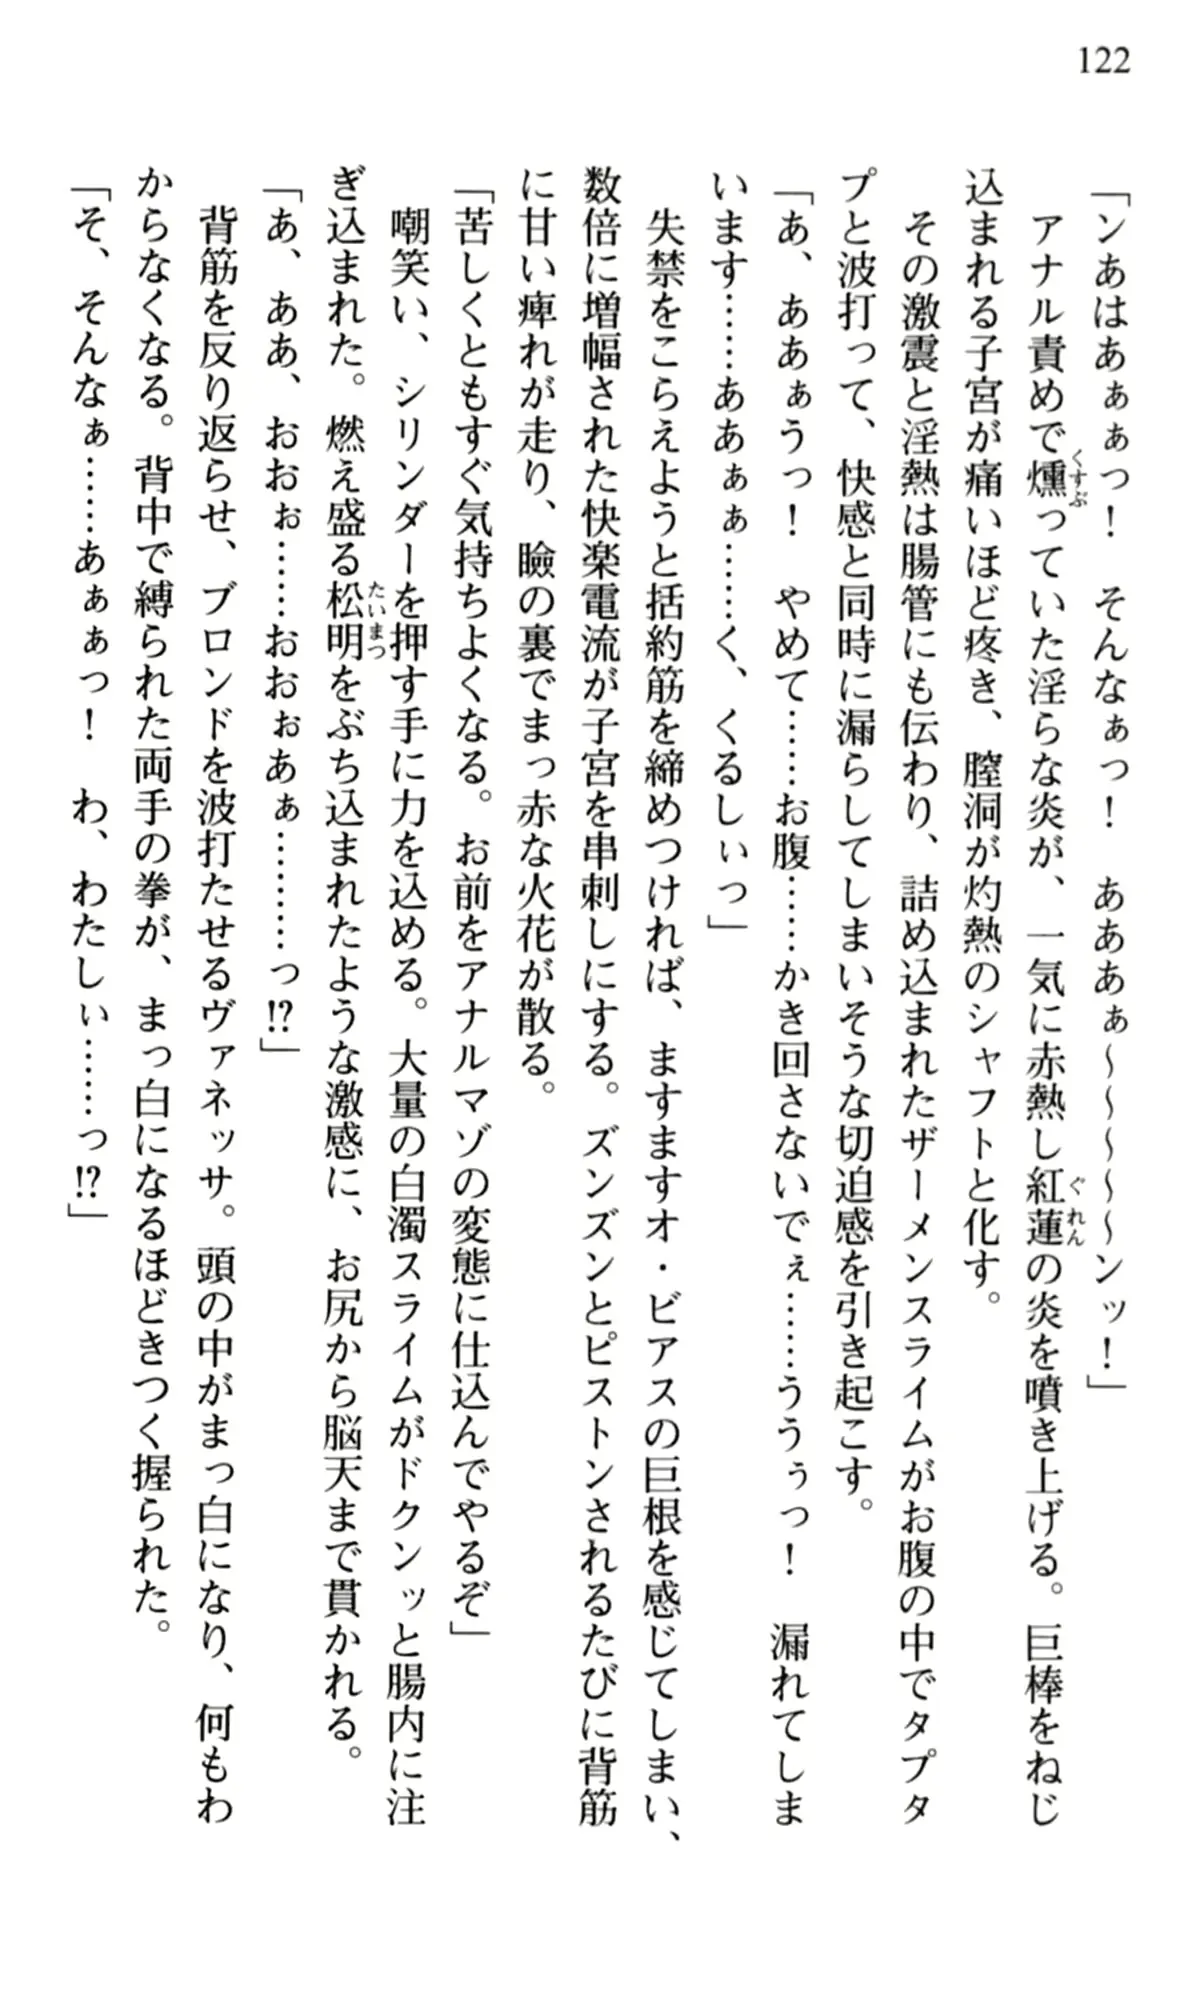 122
「ンあはあぁぁっ！　そんなぁっ！　あああぁ～～～～～ンッ！」
くすぶ　ぐれん
　アナル責めで燻っていた淫らな炎が、一気に赤熱し紅蓮の炎を噴き上げる。巨棒をねじ
込まれる子宮が痛いほど疼き、膣洞が灼熱のシャフトと化す。
　その激震と淫熱は腸管にも伝わり、詰め込まれたザーメンスライムがお腹の中でタプタ
プと波打って、快感と同時に漏らしてしまいそうな切迫感を引き起こす。
「あ、ああぁうっ！　やめて……お腹……かき回さないでぇ……ううぅっ！　漏れてしま
います……ああぁぁ……く、くるしぃっ」
　失禁をこらえようと括約筋を締めつければ、ますますオ・ビアスの巨根を感じてしまい、
数倍に増幅された快楽電流が子宮を串刺しにする。ズンズンとピストンされるたびに背筋
に甘い痺れが走り、瞼の裏でまっ赤な火花が散る。
「苦しくともすぐ気持ちよくなる。お前をアナルマゾの変態に仕込んでやるぞ」
　嘲笑い、シリンダーを押す手に力を込める。大量の白濁スライムがドクンッと腸内に注
たいまつ
ぎ込まれた。燃え盛る松明をぶち込まれたような激感に、お尻から脳天まで貫かれる。
「あ、ああ、おおぉ……おおぉあぁ…………っ!?」
　背筋を反り返らせ、ブロンドを波打たせるヴァネッサ。頭の中がまっ白になり、何もわ
からなくなる。背中で縛られた両手の拳が、まっ白になるほどきつく握られた。
「そ、そんなぁ……あぁぁっ！　わ、わたしぃ……っ!?」